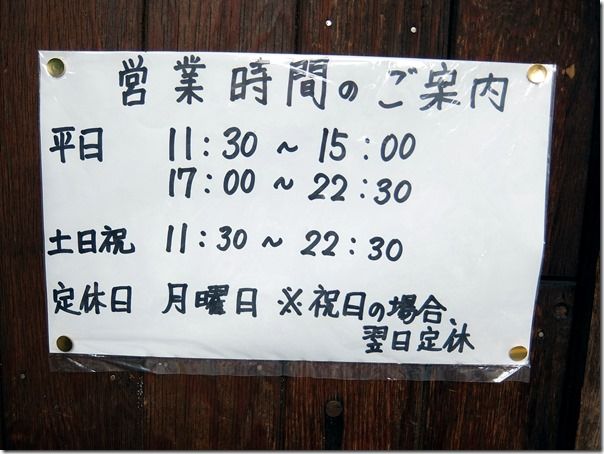 営業時間のご案内
平日 11:30 ~ 15:00
17:00 ~ 22:30
土日祝 11:30 ~ 22:30
定休日 月曜日 ※祝日の場合、
翌日定休